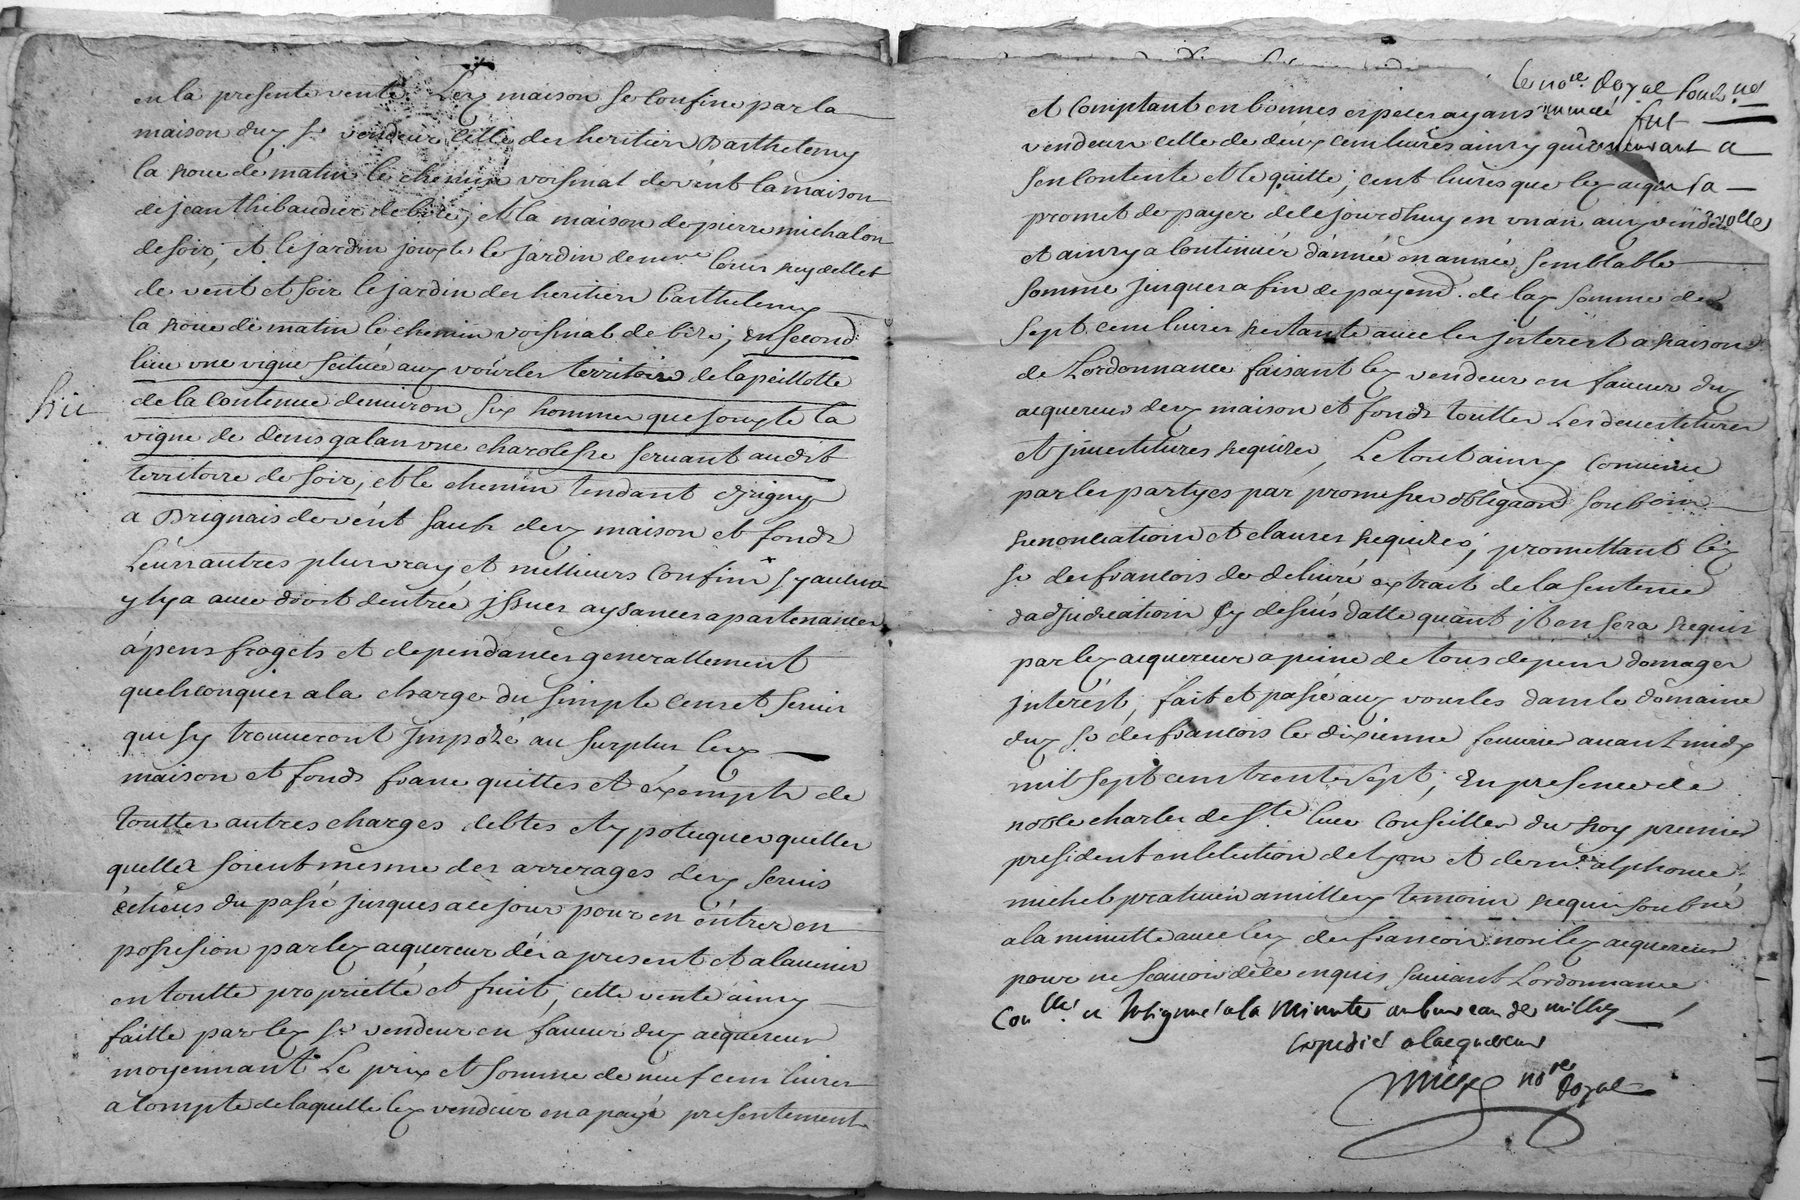 en la presente vente. Lex maison se confine par la
maison dux Sr vendeur celle des heritiers Barthelemy
la roue de matin le chemin voisinal de vent la maison
de jean thibaudier de bize, et la maison de pierre michalon
de soir, et le jardin jouxte le jardin de
de vent et soir le jardin des heritiers barthelemy
la roue de matin le chemin voisinal de bize; en second
lieu une vigne scituée aux vourles territoire de lapeillotte
de la contenue denuiron six hommes que jouxte la
vigne de denis galan une charolesse seruant audit
territoire de soir, et le chemin tendant dyrigny
a Brignais de vent saufs dex maison et fonds
Leurs autres plus vray et millieurs confins sy aucuns
y ly a auec droit dentrée jssues aysances apartenances
apens frogets et dependances generallement
quelconques a la charge du simple cens et seruis
qui sy trouueront jmpozé au surplus lex
maison et fonds franc quittes et exempts de
touttes autres charges debtes et ypoteques quelles
quelles soient mesme des arrerages dex seruis
écheus du passé jusques a ce jour pour en éntrer en
possession par lex acquereur dés a present et a laeunir
en toutte proprietté et fruit, cette vente ainsy
faitte par lex Sr vendeur en faueur dux acquereur
moyennant Le prix et somme de neuf cent liures
a compte de laquelle lex vendeur en a payé presentement
le nore Royal soubné
et comptant en bonnes especes ayans
fut
vendeur celle de deux cent liures ainsy
sen contente et le quitte; cent liures que lex acqur
promet de payer de ce jourdhuy en vn an aux vendeur
et ainsy a continuér dannée en année semblable
somme jusques a fin de payemd. de lax somme de
sept cent liures restante auec les jnterest a raison
de Lordonnance faisant lex vendeur en faueur dux
acquereur dex maison et fonds touttes Les deuestitures
et jnuestitures requises, Le tout ainsy conuenu
par les partyes par promesses obligaons soubmis
renonciations et clauses requises, promettant lex
Sr desfrancois de deliuré extrait de la sentence
dadjudication cy dessus datte quant jl en sera requis
par lex acquereur a peine de tous depens domages
jnterest, fait et passé aux vourles dans le domaine
dux Sr desfrancois le dixienne feurier auant midy
mil sept cent trente sept, En presence de
noble charles de Ste luce Conseiller du Roy premier
president en lelection de Lyon et de me alphonce
michel praticien a millery temoins requis soubné
a la minutte auec lex desfrancois non lex acquereur
pour ne scauoir de ce enquis suiuant Lordonnance
Conllé et soligné a la Minute au bureau de millery
Expedié a lacquereur
nore Royal